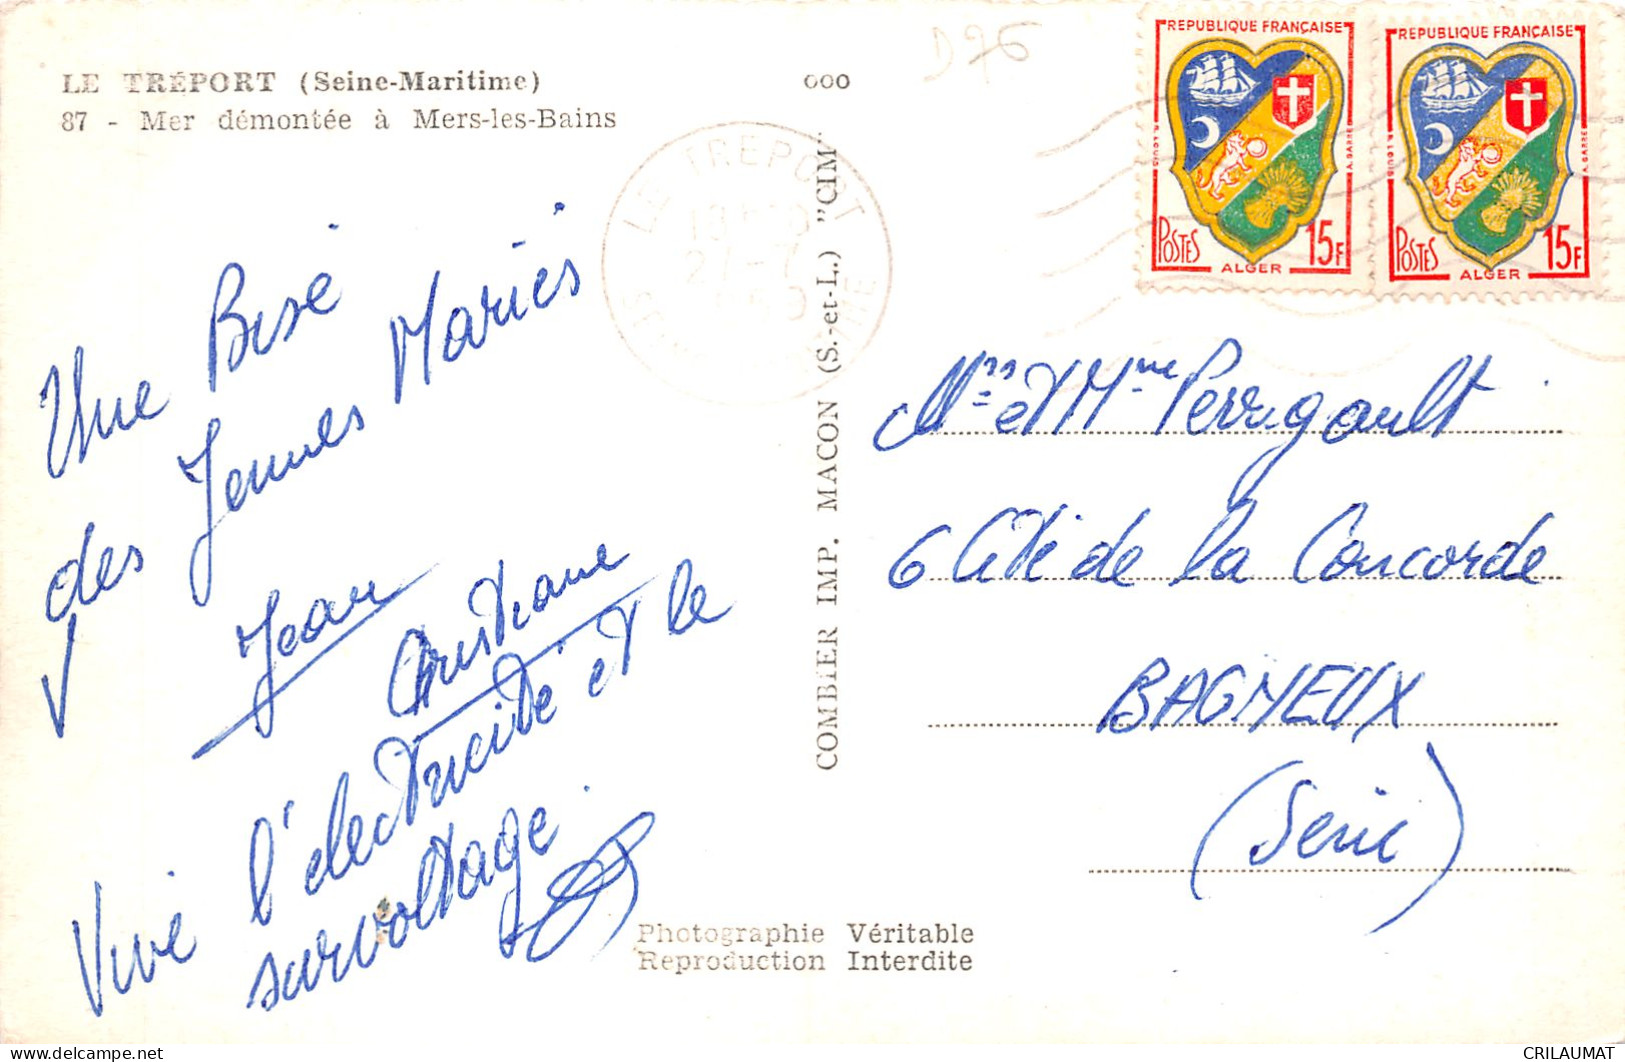 LE TRÉPORT (Seine-Maritime)
87 - Mer démontée à Mers-les-Bains
ooo
D76
REPUBLIQUE FRANÇAISE
R. LOUIS
A. BARRE
POSTES
15F
ALGER
REPUBLIQUE FRANÇAISE
R. LOUIS
A. BARRE
POSTES
15F
ALGER
LE TREPORT
Une Bise
des Jeunes Mariés
Jean
Christiane
Vive l'électricité et le
survoltage
COMBIER IMP. MACON (S.-et-L.) "CIM"
Mr et Mme Perrigault
6 Cité de la Concorde
BAGNEUX
(Seine)
Photographie Véritable
Reproduction Interdite
CRILAUMAT